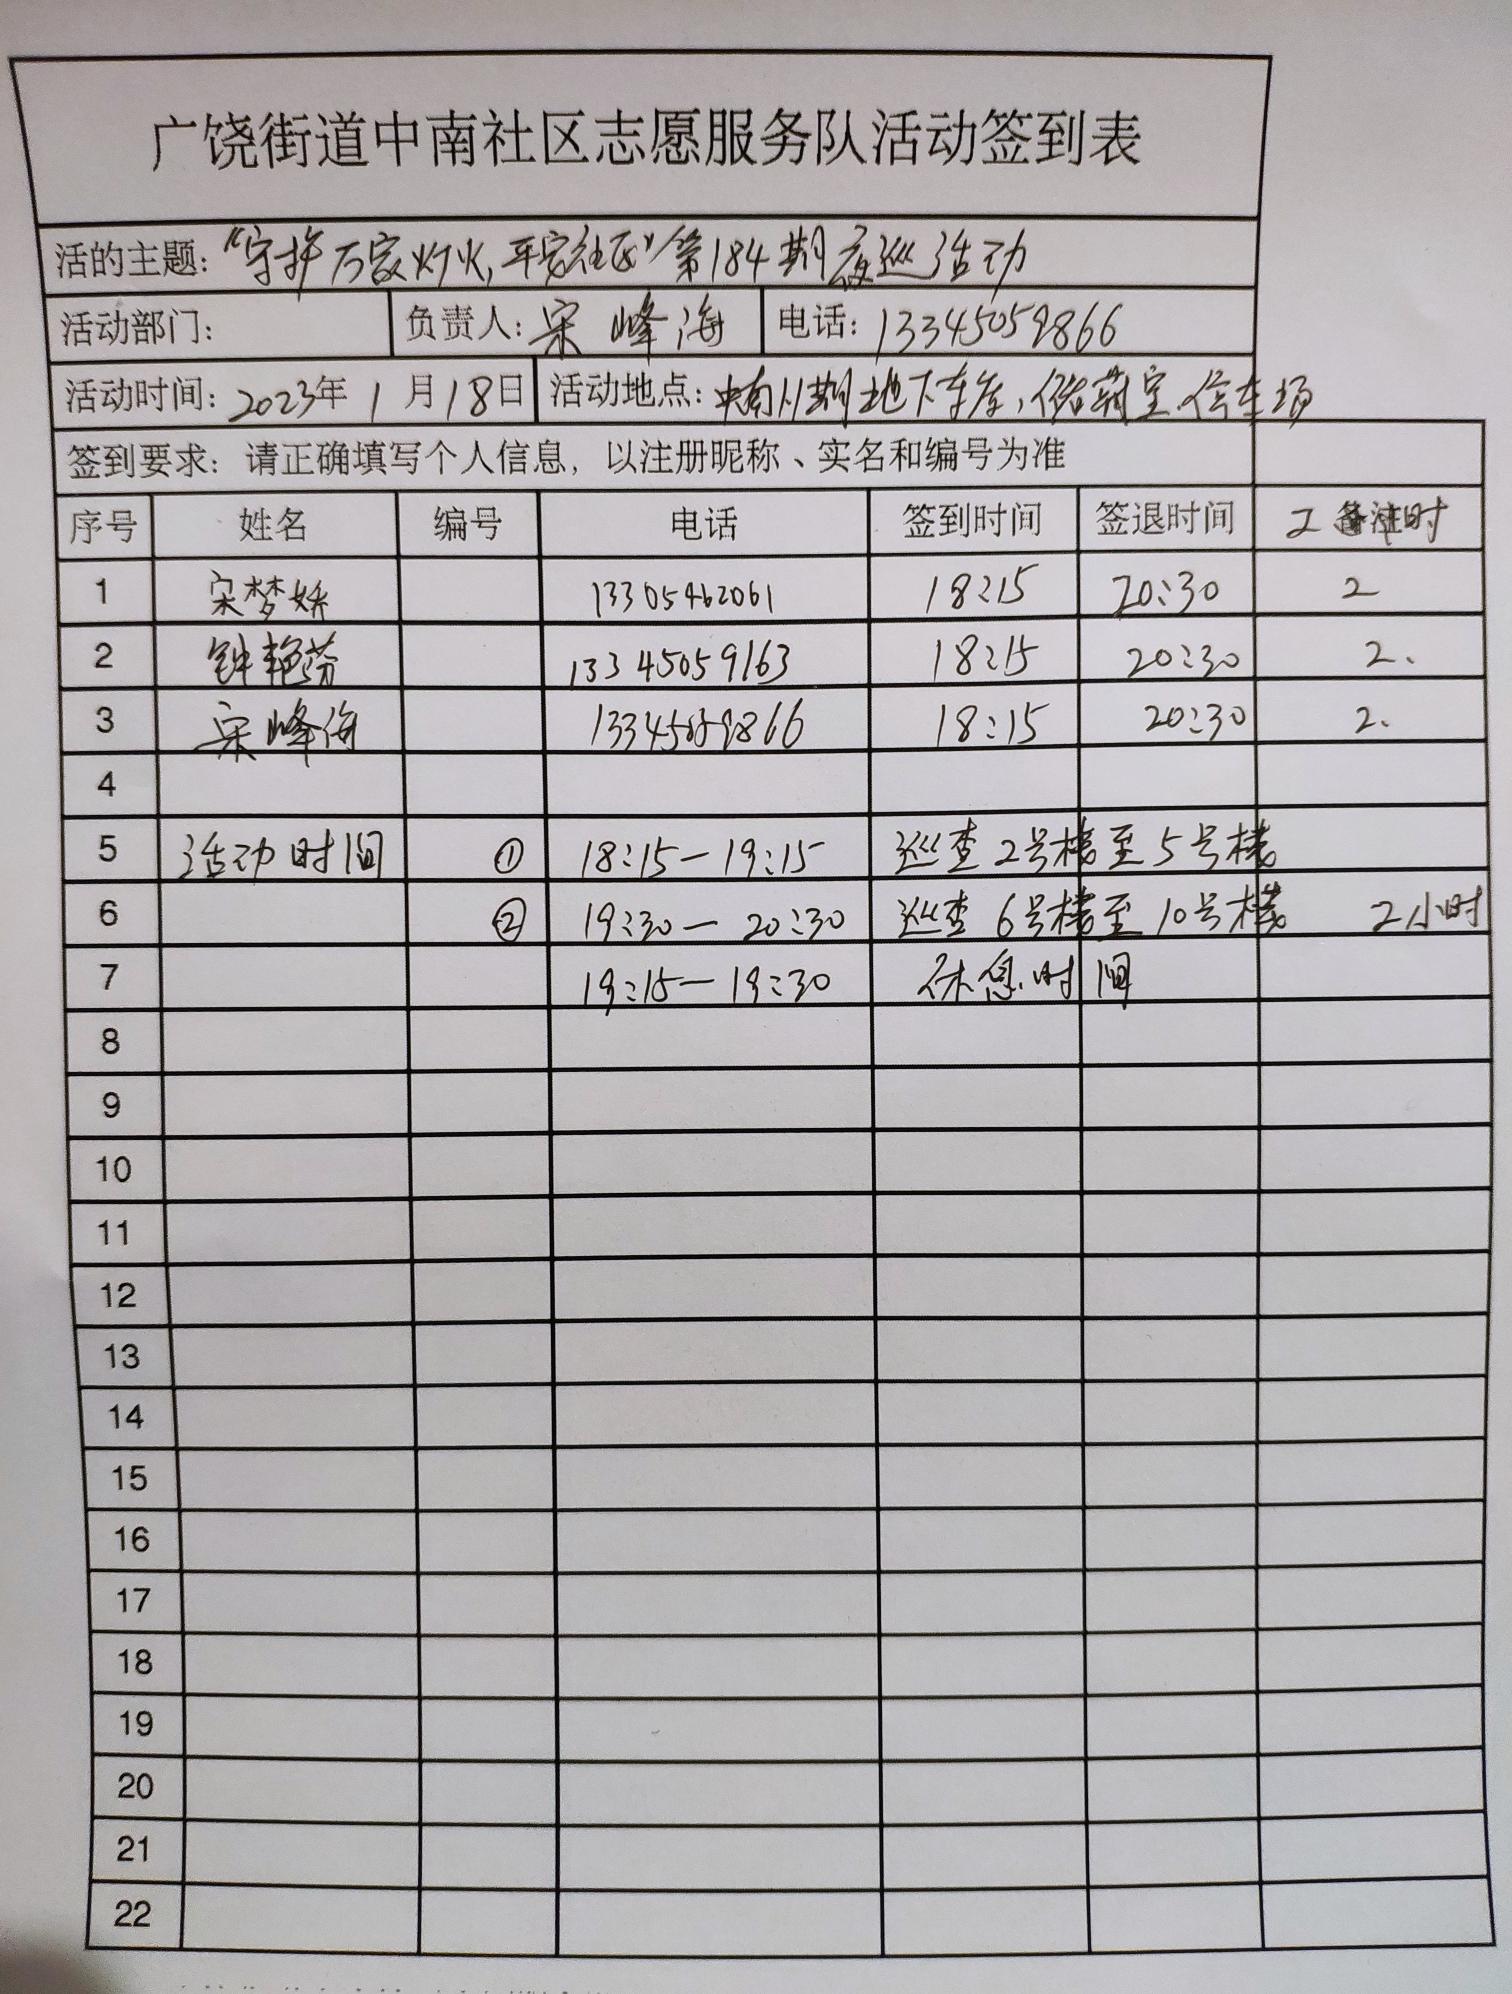 广饶街道中南社区志愿服务队活动签到表
活的主题：“守护万家灯火，平安社区”第184期夜巡活动
活动部门： 负责人：宋峰海 电话：13345059866
活动时间：2023年1月18日 活动地点：中南川期地下车库，储藏室、停车场
签到要求：请正确填写个人信息，以注册昵称、实名和编号为准
序号 姓名 编号 电话 签到时间 签退时间 工 时
1 宋梦娇 13305462061 18:15 20:30 2
2 钟艳芬 13345059163 18:15 20:30 2.
3 宋峰海 13345059866 18:15 20:30 2.
4
5 活动时间 ① 18:15—19:15 巡查2号楼至5号楼
6 ② 19:30—20:30 巡查6号楼至10号楼 2小时
7 19:15—19:30 休息时间
8
9
10
11
12
13
14
15
16
17
18
19
20
21
22